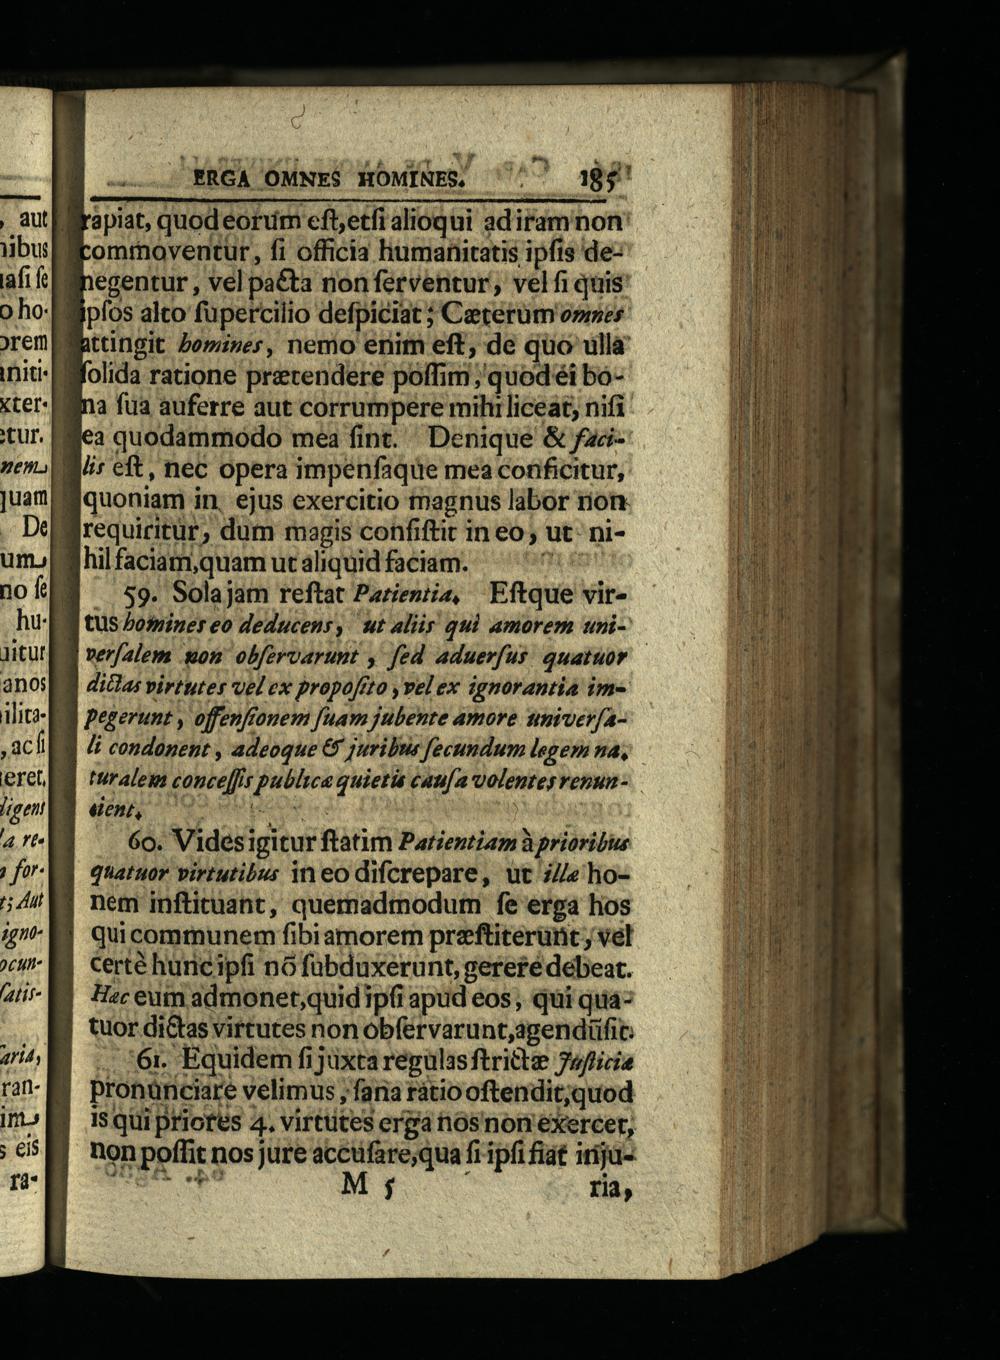 ERGA OMNES HOMINES. 185
rapiat, quod eorum eſt, etſi alioqui ad iram non
commoventur, ſi officia humanitatis ipſis de-
negentur, vel pacta non ſerventur, vel ſi quis
ipſos alto ſupercilio deſpiciat; Cæterum omnes
attingit homines, nemo enim eſt, de quo ulla
ſolida ratione prætendere poſſim, quod ei bo-
na ſua auferre aut corrumpere mihi liceat, niſi
ea quodammodo mea ſint. Denique & faci-
lis eſt, nec opera impenſaque mea conficitur,
quoniam in ejus exercitio magnus labor non
requiritur, dum magis conſiſtit in eo, ut ni-
hil faciam, quam ut aliquid faciam.
59. Sola jam reſtat Patientia. Eſtque vir-
tus homines eo deducens, ut aliis qui amorem uni-
verſalem non obſervarunt, ſed aduerſus quatuor
dictas virtutes vel ex propoſito, vel ex ignorantia im-
pegerunt, offenſionem ſuam jubente amore univerſa-
li condonent, adeoque & juribus ſecundum legem na.
turalem conceſſis publicæ quietis cauſa volentes renun-
tient.
60. Vides igitur ſtatim Patientiam à prioribus
quatuor virtutibus in eo diſcrepare, ut illæ ho-
nem inſtituant, quemadmodum ſe erga hos
qui communem ſibi amorem præſtiterunt, vel
certè hunc ipſi nō ſubduxerunt, gerere debeat.
Hæc eum admonet, quid ipſi apud eos, qui qua-
tuor dictas virtutes non obſervarunt, agendūſit.
61. Equidem ſi juxta regulas ſtrictæ Juſticiæ
pronunciare velimus, ſana ratio oſtendit, quod
is qui priores 4. virtutes erga nos non exercet,
non poſſit nos jure accuſare, qua ſi ipſi fiat inju-
M 5 ria,
, aut
nibus
aſi ſe
o ho-
orem
aniti-
xter-
etur.
nem
quam
De
um
no ſe
hu-
uitur
anos
ilita-
, ac ſi
ieret.
ligent
a re-
for-
t; Aut
igno-
ocun-
ſatis-
aria,
ran-
im
s eis
ra-